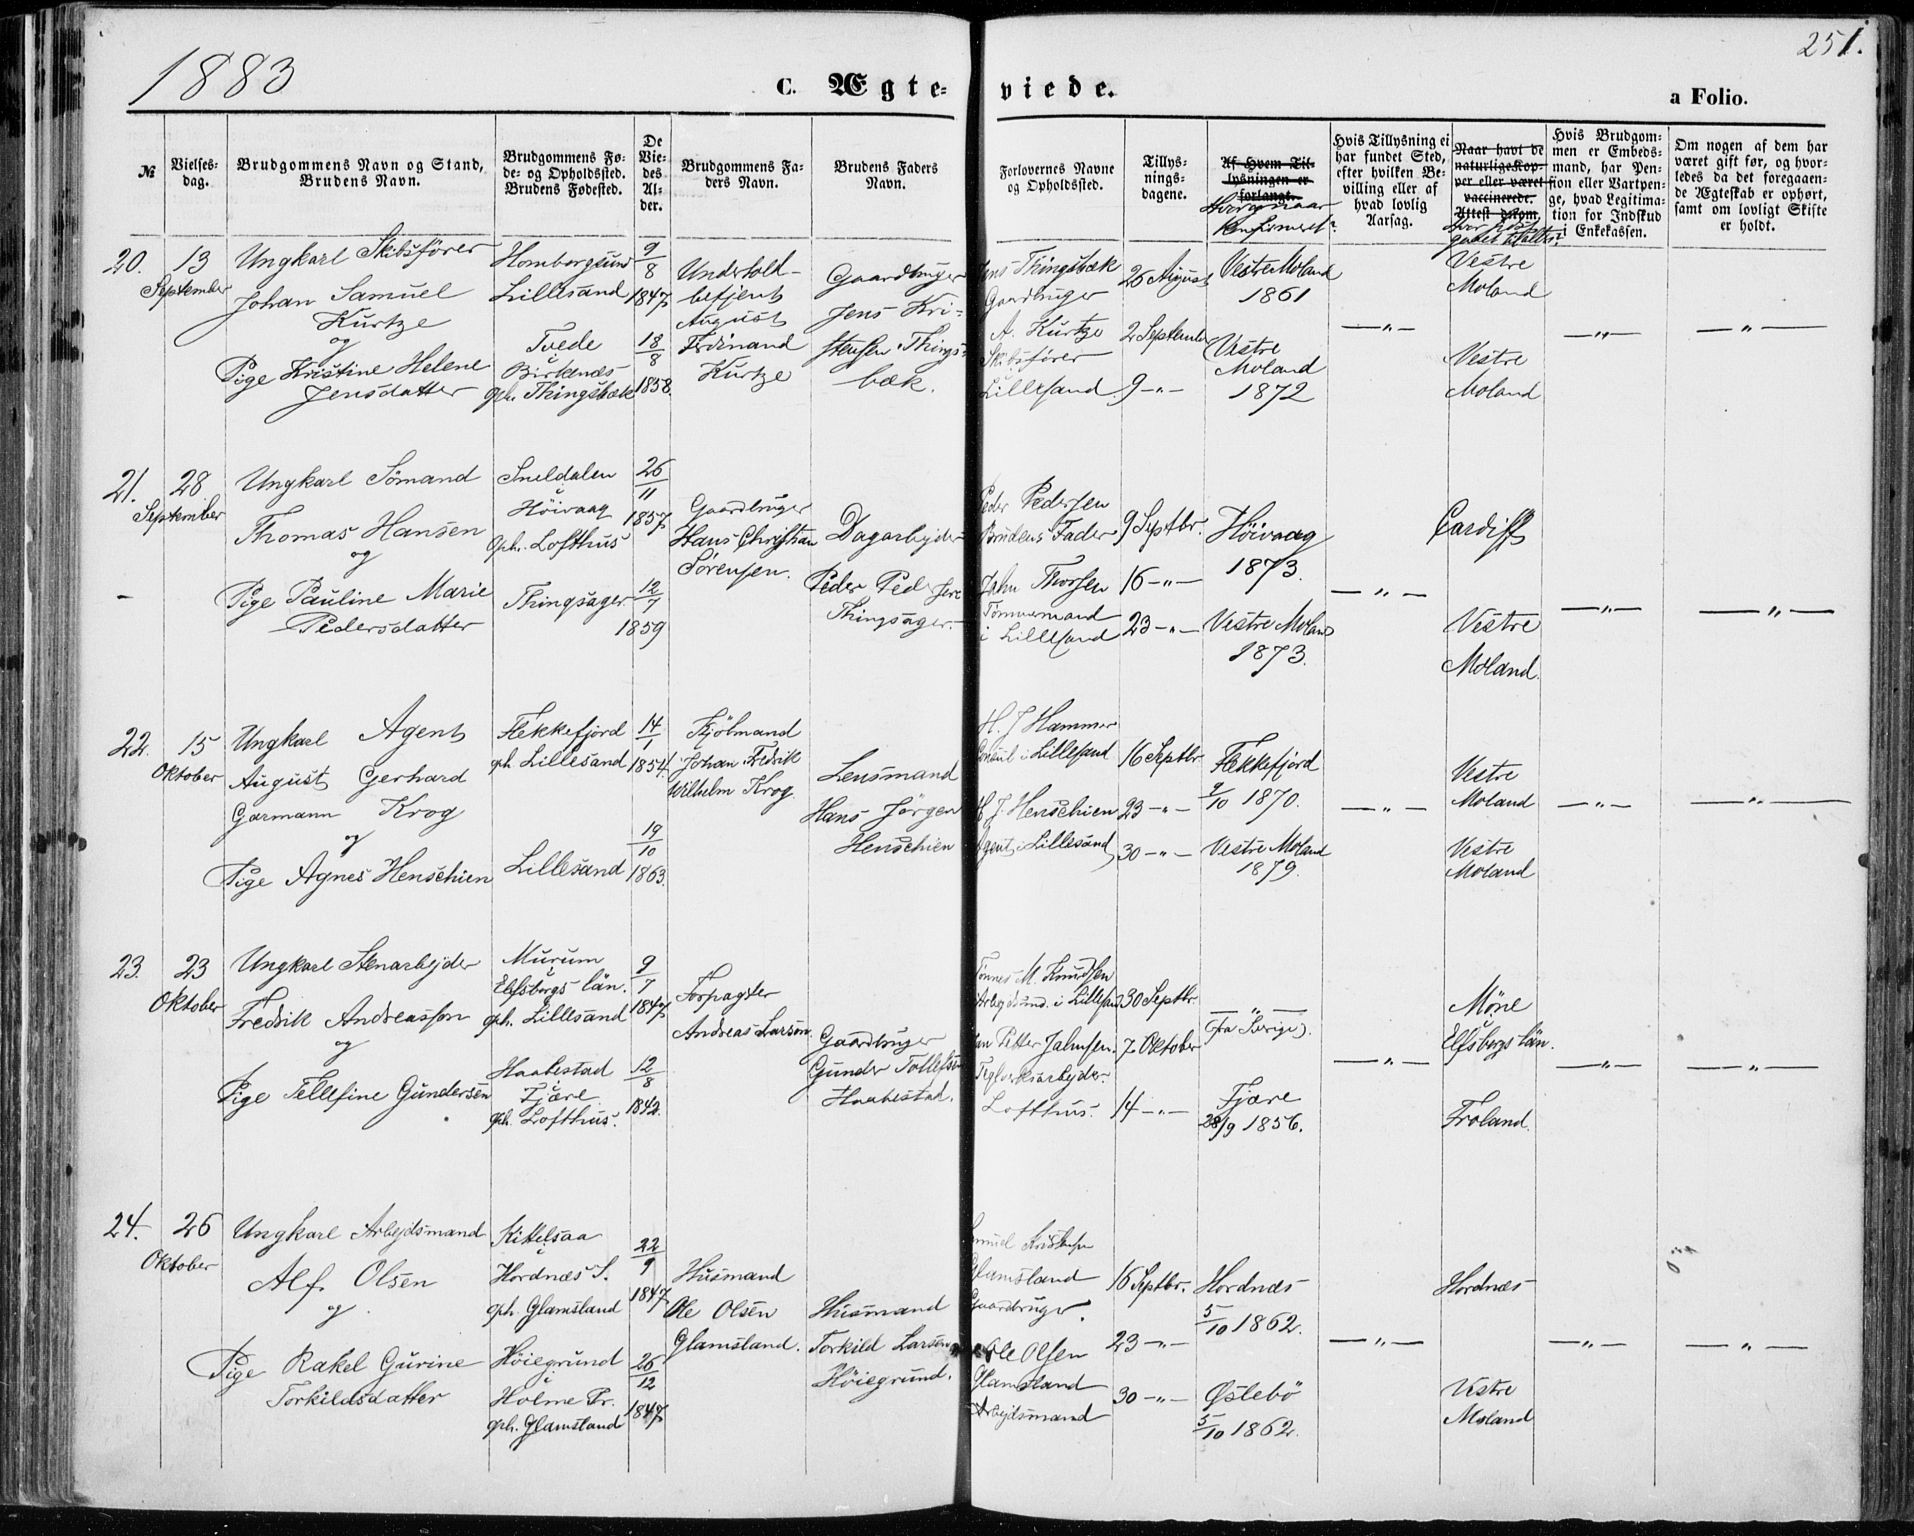 1883
251.
C. Ægte-
viede.
a Folio.
№
Vielses-
dag.
Brudgommens Navn og Stand,
Brudens Navn.
Brudgommens Fø-
de- og Opholdssted.
Brudens Fødested.
De
Vie-
des
Al-
der.
Brudgommens Fa-
ders Navn.
Brudens Faders
Navn.
Forlovernes Navne
og Opholdssted.
Tillys-
nings-
dagene.
Af Hvem Til-
lysningen er
forlangt.
Hvor og naar
konfirmeret?
Hvis Tillysning ei
har fundet Sted,
efter hvilken Be-
villing eller af
hvad lovlig
Aarsag.
Naar havt de
naturlige Kop-
per eller været
vaccinerede.
Attest derom.
Hvis Brudgom-
men er Embeds-
mand, har Pen-
sion eller Vartpen-
ge, hvad Legitima-
tion for Indskud
i Enkekassen.
Om nogen af dem har
været gift før, og hvor-
ledes da det foregaaen-
de Ægteskab er ophørt,
samt om lovligt Skifte
er holdt.
20.
13
September
Ungkarl Skibsfører
Johan Samuel
Kurtze
og
Pige Kristine Helene
Jensdatter
Homborgsund
Lillesand
Tvede
i
Birkenæs
oph. Thingsbæk
9/8
1847
18/8
1858.
Underhold-
betjent
August
Ferdinand
Kurtze
Gaardbruger
Jens Kri-
stensen Things-
bæk.
Jens Thingsbæk
Gaardbruger
A. Kurtze
Skibsfører
Lillesand
26 August
2 September
9 -"-
Vestre Moland
1861
Vestre
Moland
1872
-"-
Vestre
Moland
Vestre
Moland
-"-
-"-
21.
28
September
Ungkarl Sømand
Thomas Hansen
og
Pige Pauline Marie
Pedersdatter
Sneldalen
i
Høivaag
Oph. Lofthus
Thingsager
26/11
1857
12/7
1859
Gaardbruger
Hans Christian
Sørensen.
Dagarbejder
Peder Pedersen
Thingsager.
Peder Pedersen
Brudens Fader
Jahn Thorsen
Tømmermand
i Lillesand
9 Septbr.
16 -"-
23 -"-
Høivaag
1873.
Vestre Moland
1873.
-"-
Cardiff
Vestre
Moland.
-"-
-"-
22.
15
Oktober
Ungkarl Agent
August Gerhard
Garmann Krog
og
Pige Agnes Henschien
Flekkefjord
oph. Lillesand
Lillesand
14/1
1854.
19/10
1863.
Kjøbmand
Johan Fredrik
Wilhelm Krog.
Lensmand
Hans Jørgen
Henschien
H. J. Hammer
Konsul i Lillesand
H. J. Henschien
Agent i Lillesand
16 Septbr.
23 -"-
30 -"-
Flekkefjord
9/10 1870.
Vestre Moland
1879.
-"-
Vestre
Moland
Vestre
Moland
-"-
-"-
23.
23
Oktober
Ungkarl Stenarbejder
Fredrik Andreasson
og
Pige Tellefine Gundersen
Murum
i
Elfsborgs län.
oph. Lillesand
Haabestad
i
Fjære
oph. Lofthus.
9/7
1847
12/8
1842.
Forpagter
Andreas Larson
Gaardbruger
Gunder Tollefsen
Haabestad.
Tønnes M. Knudsen
Arbejdsmd. i Lillesand
Jan Petter Jahnsen.
Teglverksarbejder.
Lofthus.
30 Septbr.
7 Oktober
14 -"-
-"-
(fra Sverige).
Fjære
28/9 1856.
-"-
Møne
i
Elfsborgs län.
Froland.
-"-
-"-
24.
26
Oktober
Ungkarl Arbejdsmand
Alf Olsen
og
Pige Rakel Gurine
Torkildsdatter
Kittelsaa
i
Hordnæs S.
oph. Glamsland
Høiegrund
i
Holme Pr.
oph. Glamsland
22/9
1847
26/12
1847
Husmand
Ole Olsen
Glamsland.
Husmand
Torkild Larsen
Høiegrund.
Glamsland
Gaardbruger.
Ole Olsen
Glamsland
Arbejdsmand
16 Septbr.
23 -"-
30 -"-
Hordnæs
5/10 1862.
Øslebö
5/10 1862.
-"-
Hordnæs
Vestre
Moland
-"-
-"-